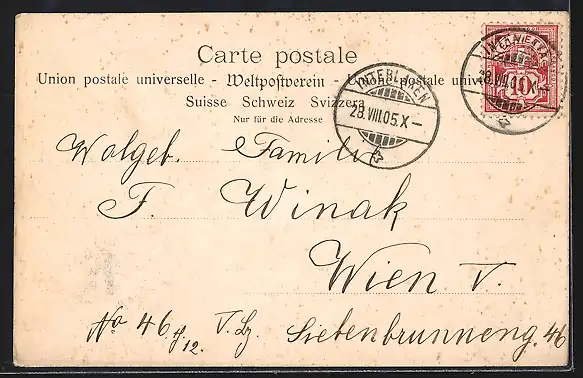 Carte postale
Union postale universelle - Weltpostverein - Unione postale univ
Suisse Schweiz Svizzera
Nur für die Adresse
INTERLAKEN
28.VIII.05.X-
10
INTERLAKEN
28.VIII.05.X-
Wolgeb. Familie
F. Winak
Wien V.
No 46 12. Siebenbrunneng. 46